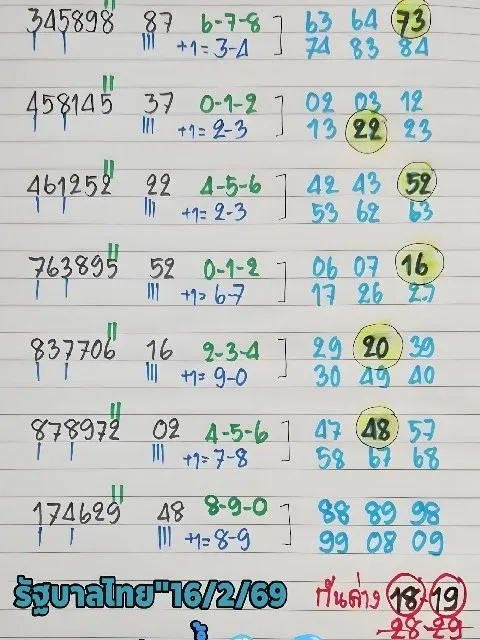 345898 87 6-7-8 63 64 73
+1=3-4 74 83 84
458145 37 0-1-2 02 03 12
+1=2-3 13 22 23
461252 22 4-5-6 42 43 52
+1=2-3 53 62 63
763895 52 0-1-2 06 07 16
+1=6-7 17 26 27
837706 16 2-3-4 29 20 39
+1=9-0 30 49 40
878972 02 4-5-6 47 48 57
+1=7-8 58 67 68
174629 48 8-9-0 88 89 98
+1=8-9 99 08 09
รัฐบาลไทย"16/2/69 กันล่าง 18-19
28-29